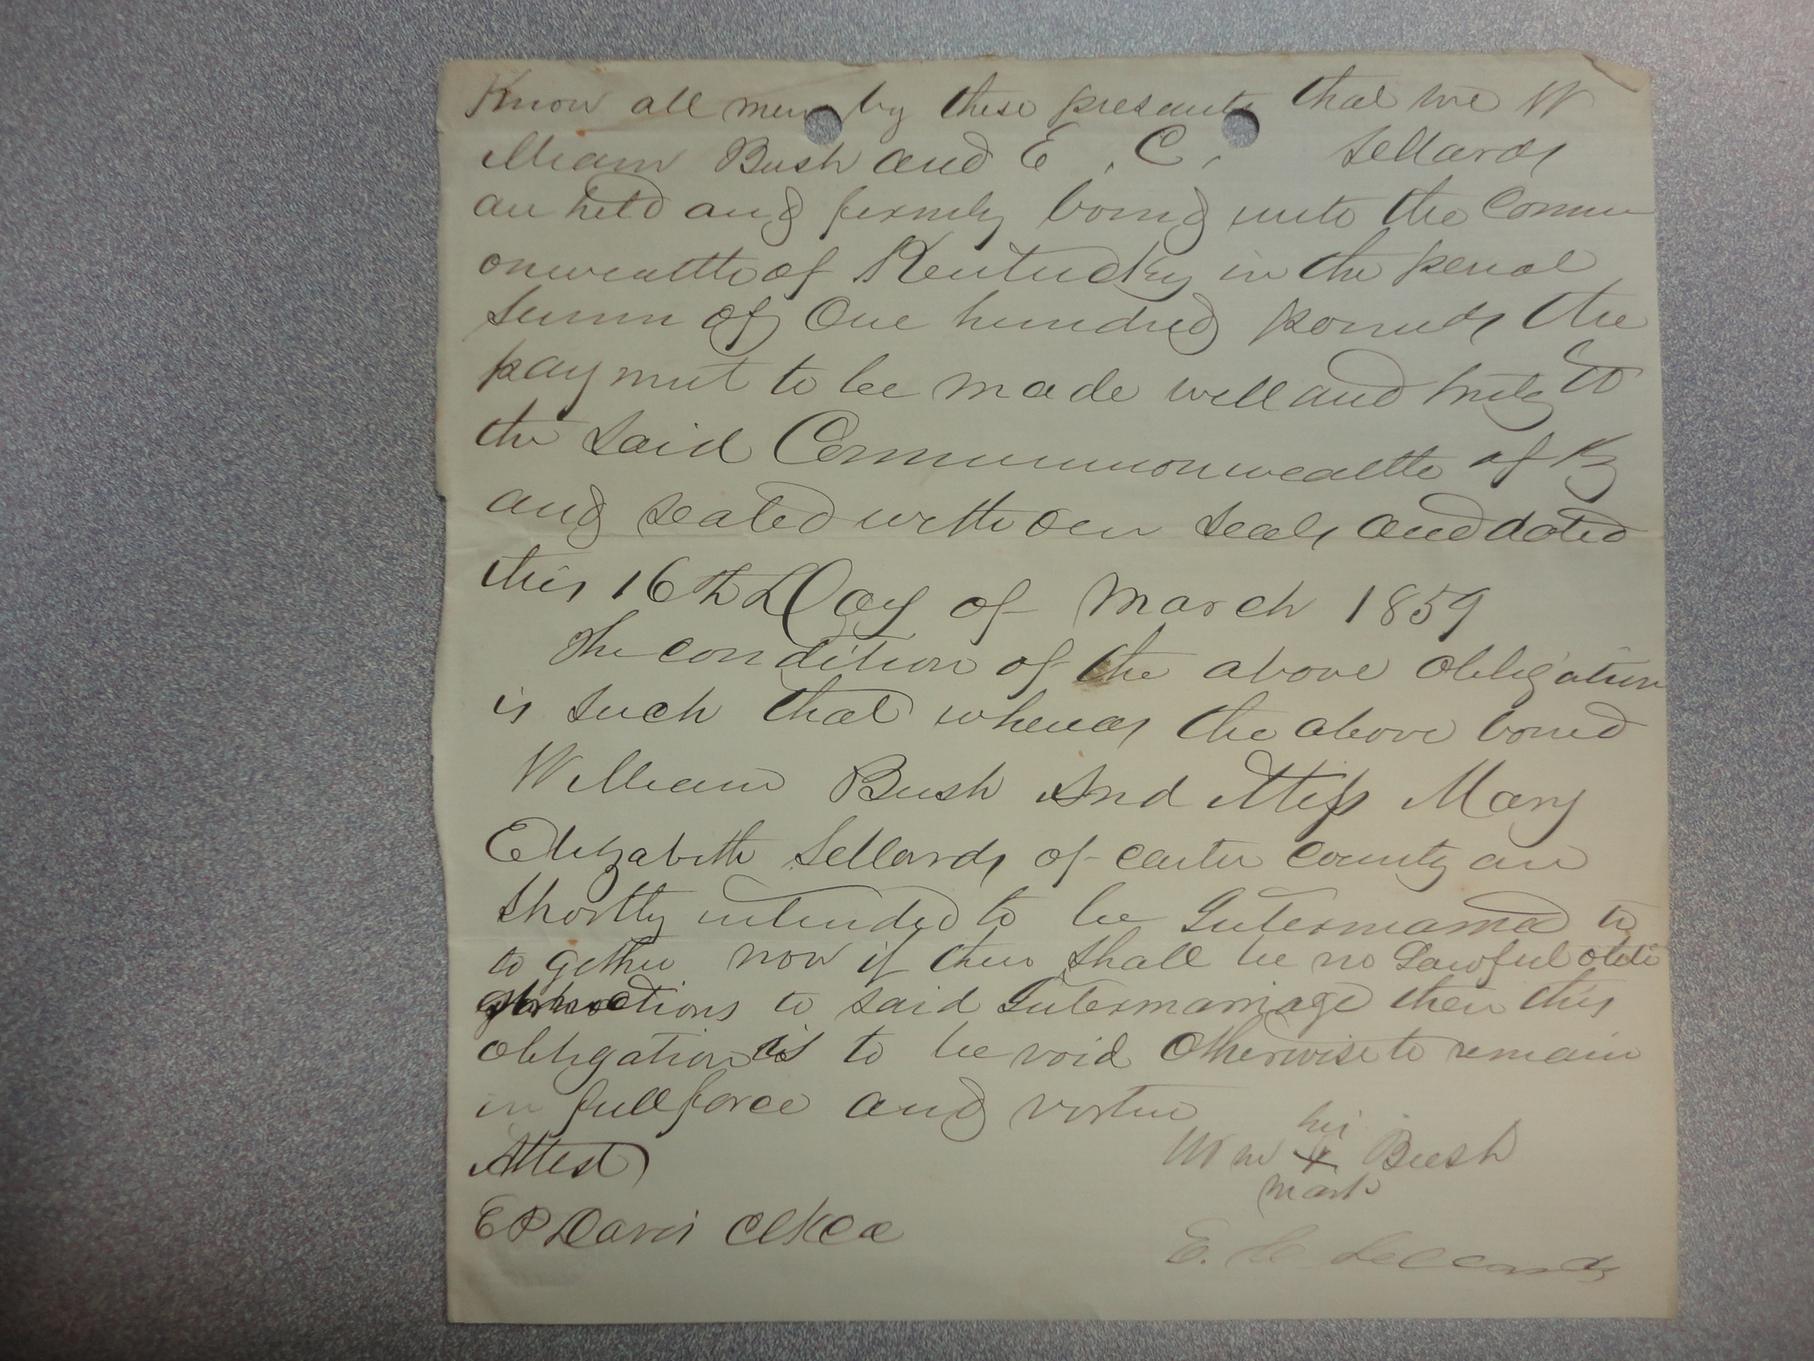 Know all men by these presants that we W
illiam Bush and E. C. Sellards
are held and firmly bound unto the Comm
onwealth of Kentucky in the penal
sum of One hundred pounds the
payment to be made well and truly to
the said Commonwealth of Ky
and sealed with our seals and dated
this 16th Day of March 1859
The condition of the above obligation
is such that whereas the above bound
William Bush And Miss Mary
Elizabeth Sellards of Carter County are
shortly intended to be Intermarried to
to gether now if there shall be no Lawful
obstructions to said Intermarriage then this
obligation is to be void Otherwise to remain
in full force and vertue
Attest
Wm his X mark Bush
E P Davis Clk
E. C. Sellards